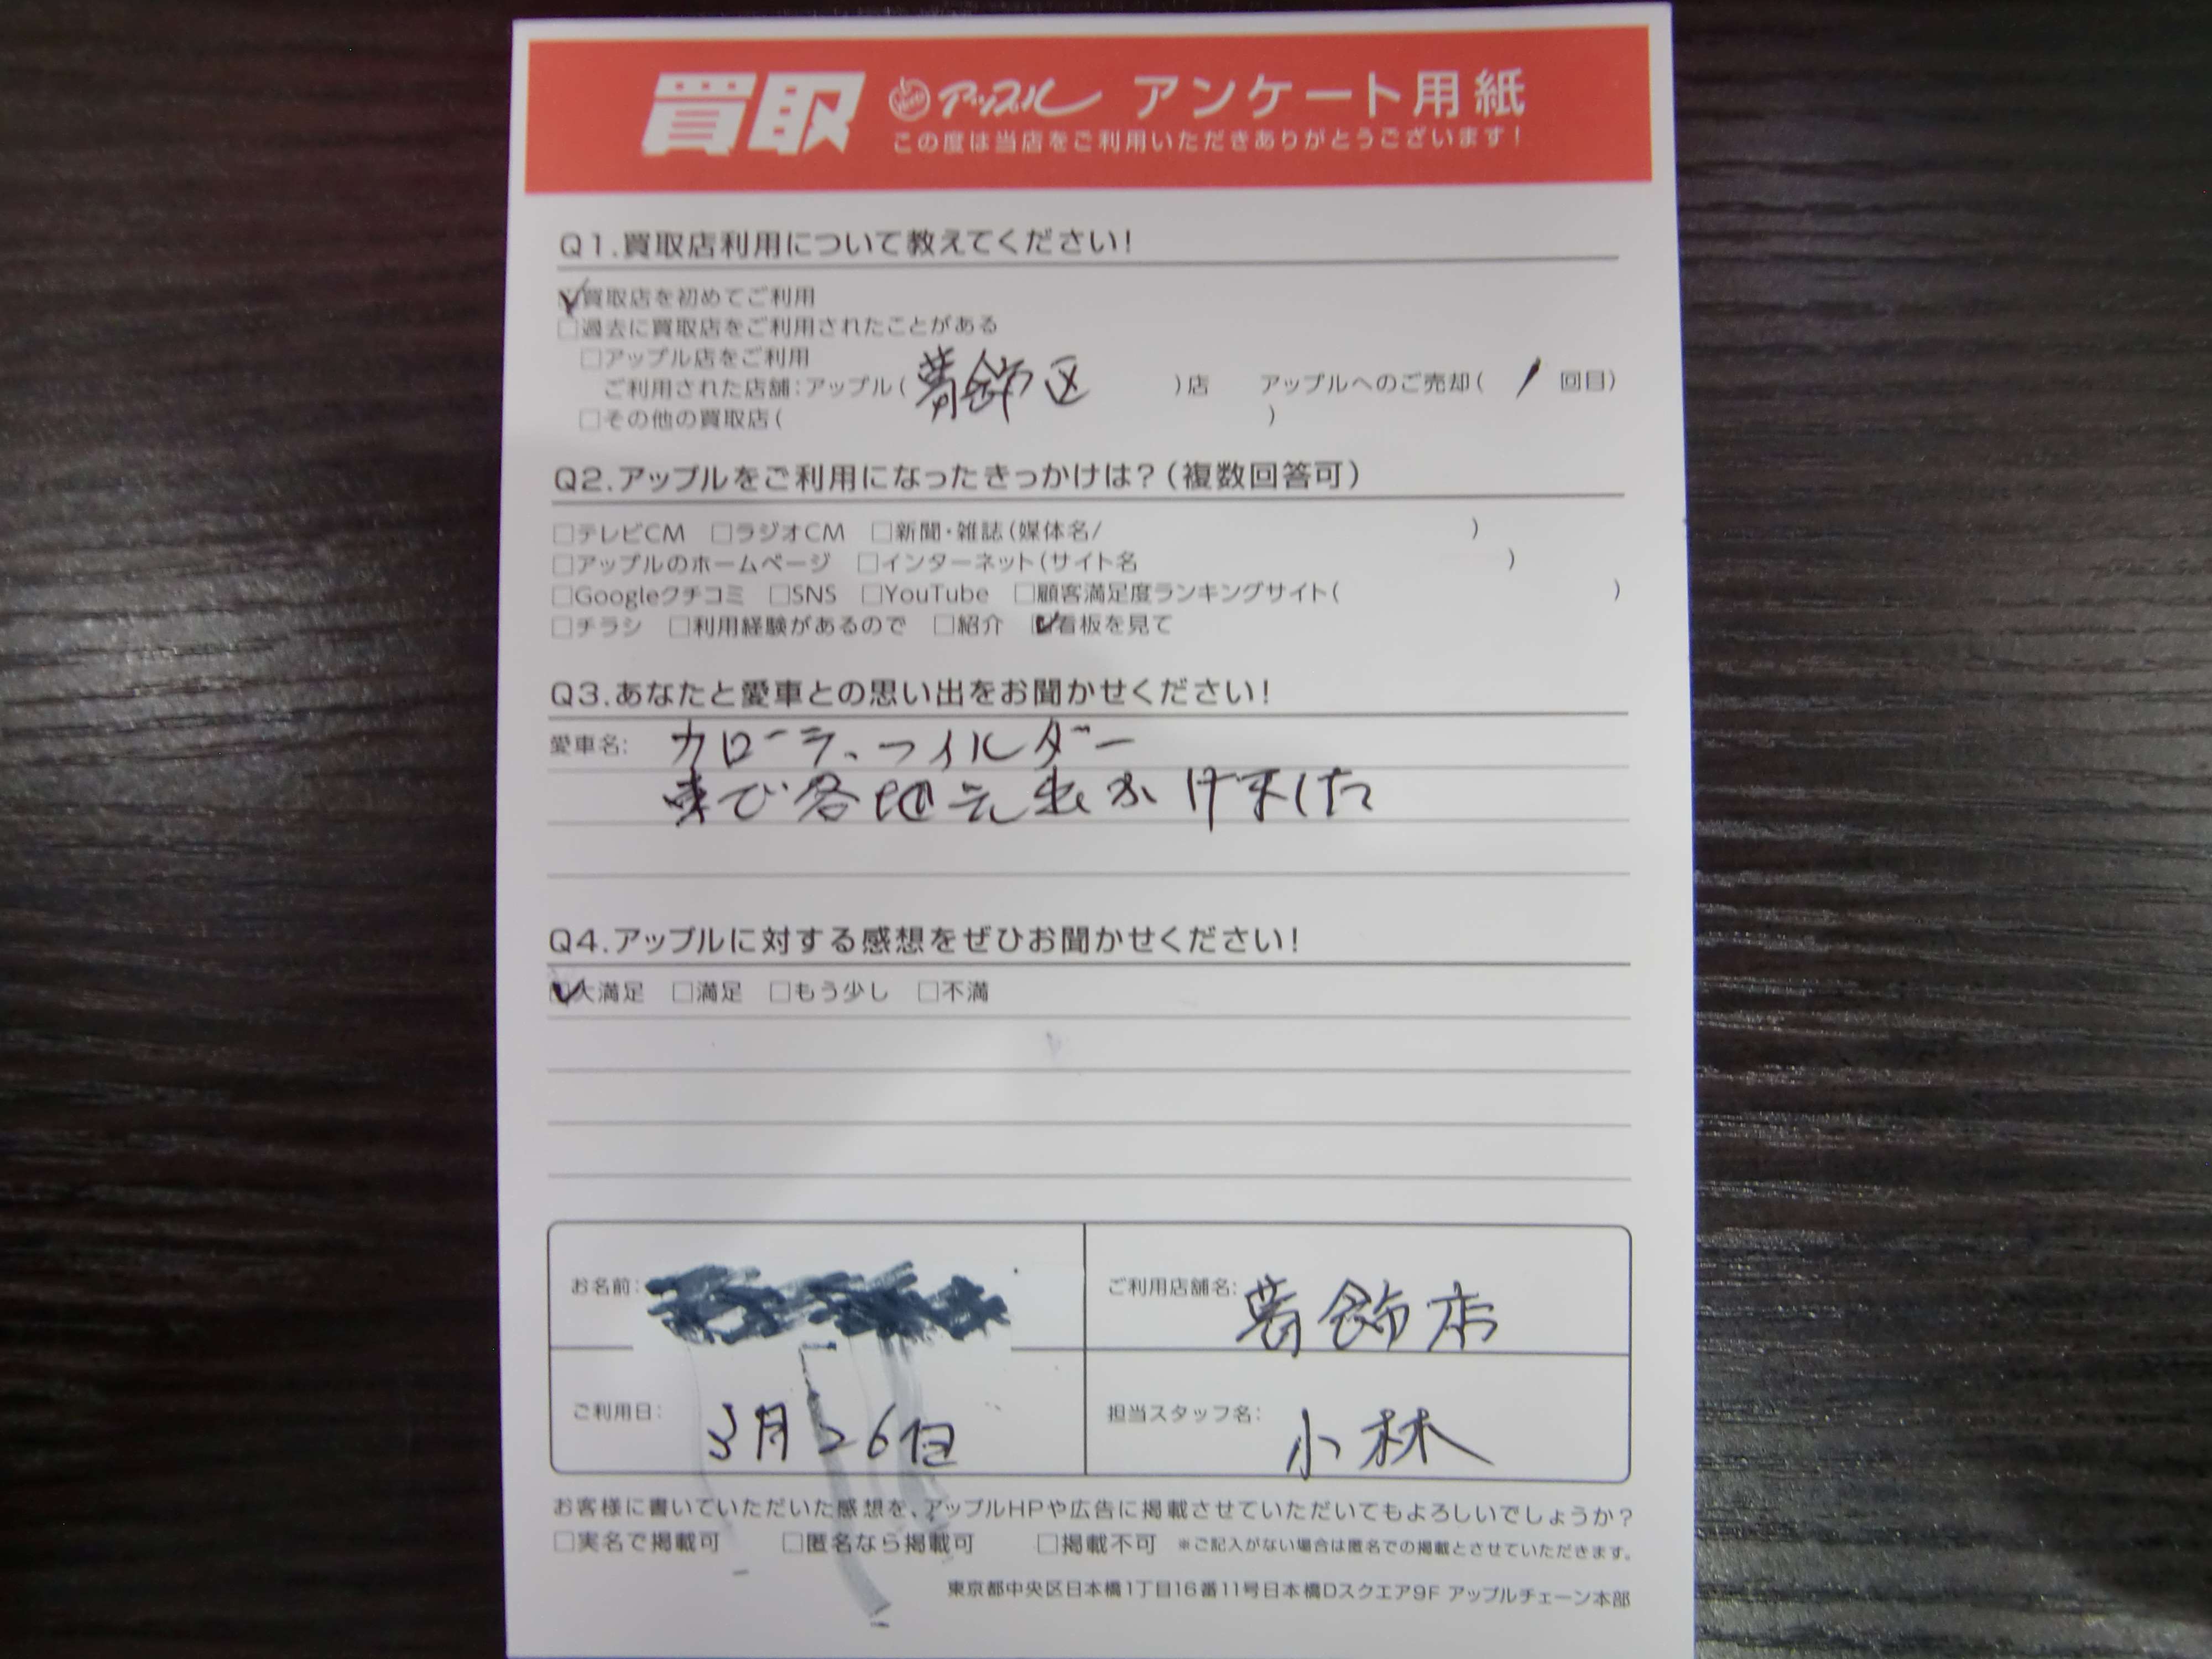 買取 アップル アンケート用紙
この度は当店をご利用いただきありがとうございます!
Q1.買取店利用について教えてください!
☑買取店を初めてご利用
□過去に買取店をご利用されたことがある
□アップル店をご利用
ご利用された店舗:アップル( 葛飾区 )店 アップルへのご売却( 1 回目)
□その他の買取店( )
Q2.アップルをご利用になったきっかけは?(複数回答可)
□テレビCM □ラジオCM □新聞・雑誌(媒体名/ )
□アップルのホームページ □インターネット(サイト名 )
□Googleクチコミ □SNS □YouTube □顧客満足度ランキングサイト( )
□チラシ □利用経験があるので □紹介 ☑看板を見て
Q3.あなたと愛車との思い出をお聞かせください!
愛車名: カローラ、フィルダー
車で各地に出かけました
Q4.アップルに対する感想をぜひお聞かせください!
☑大満足 □満足 □もう少し □不満
お名前: ご利用店舗名: 葛飾店
ご利用日: 3月26日 担当スタッフ名: 小林
お客様に書いていただいた感想を、アップルHPや広告に掲載させていただいてもよろしいでしょうか?
□実名で掲載可 □匿名なら掲載可 □掲載不可 ※ご記入がない場合は匿名での掲載とさせていただきます。
東京都中央区日本橋1丁目16番11号日本橋Dスクエア9F アップルチェーン本部